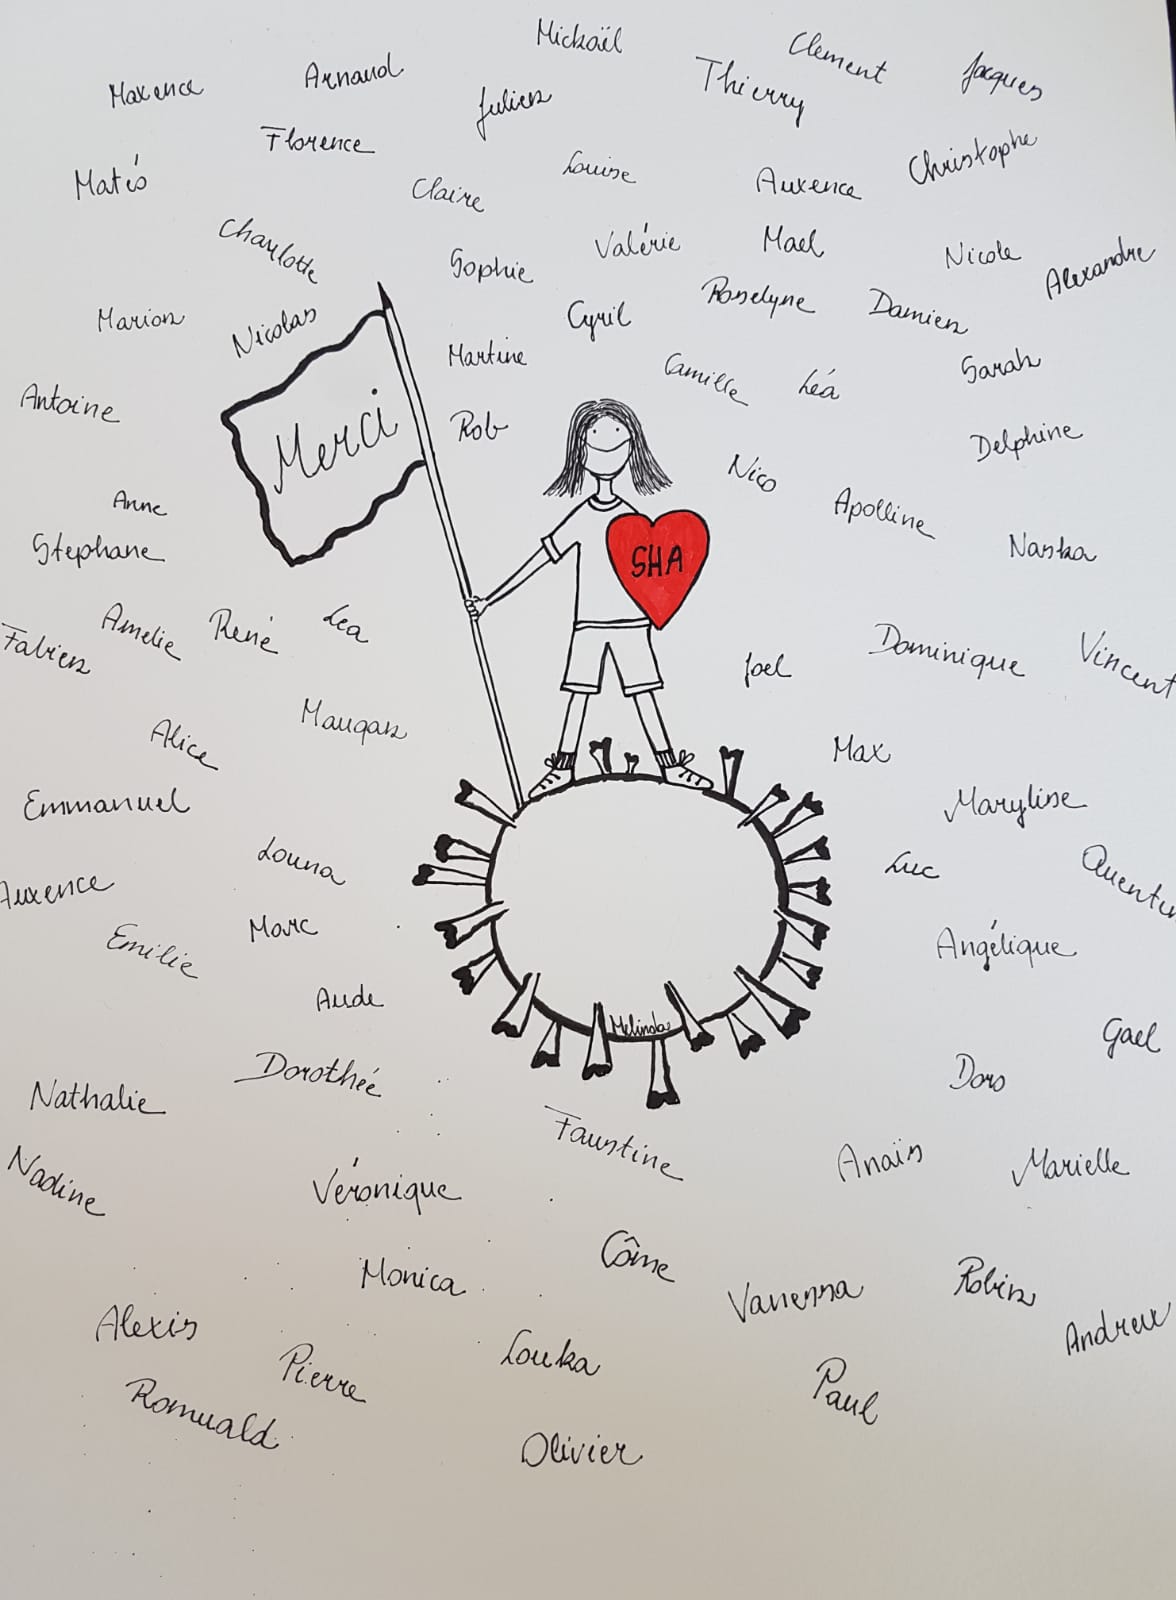 Mickaël
Clement
Maxence
Arnaud
Thierry
Jacques
Julien
Florence
Matéo
Claire
Louise
Auxence
Christophe
Charlotte
Sophie
Valérie
Mael
Nicole
Alexandre
Marion
Nicolas
Cyril
Roselyne
Damien
Martine
Camille
Léa
Sarah
Antoine
Merci
Rob
Delphine
Nico
Anne
Apolline
Stephane
SHA
Naska
Fabien
Amelie
René
Lea
Joel
Dominique
Vincent
Alice
Maugan
Max
Emmanuel
Maryline
Louna
Luc
Quentin
Auxence
Emilie
Marc
Angélique
Aude
Melinda
Gael
Nathalie
Dorothée
Doro
Faustine
Nadine
Véronique
Anaïs
Marielle
Monica
Côme
Vanessa
Robin
Alexis
Andrew
Pierre
Louka
Romuald
Paul
Olivier